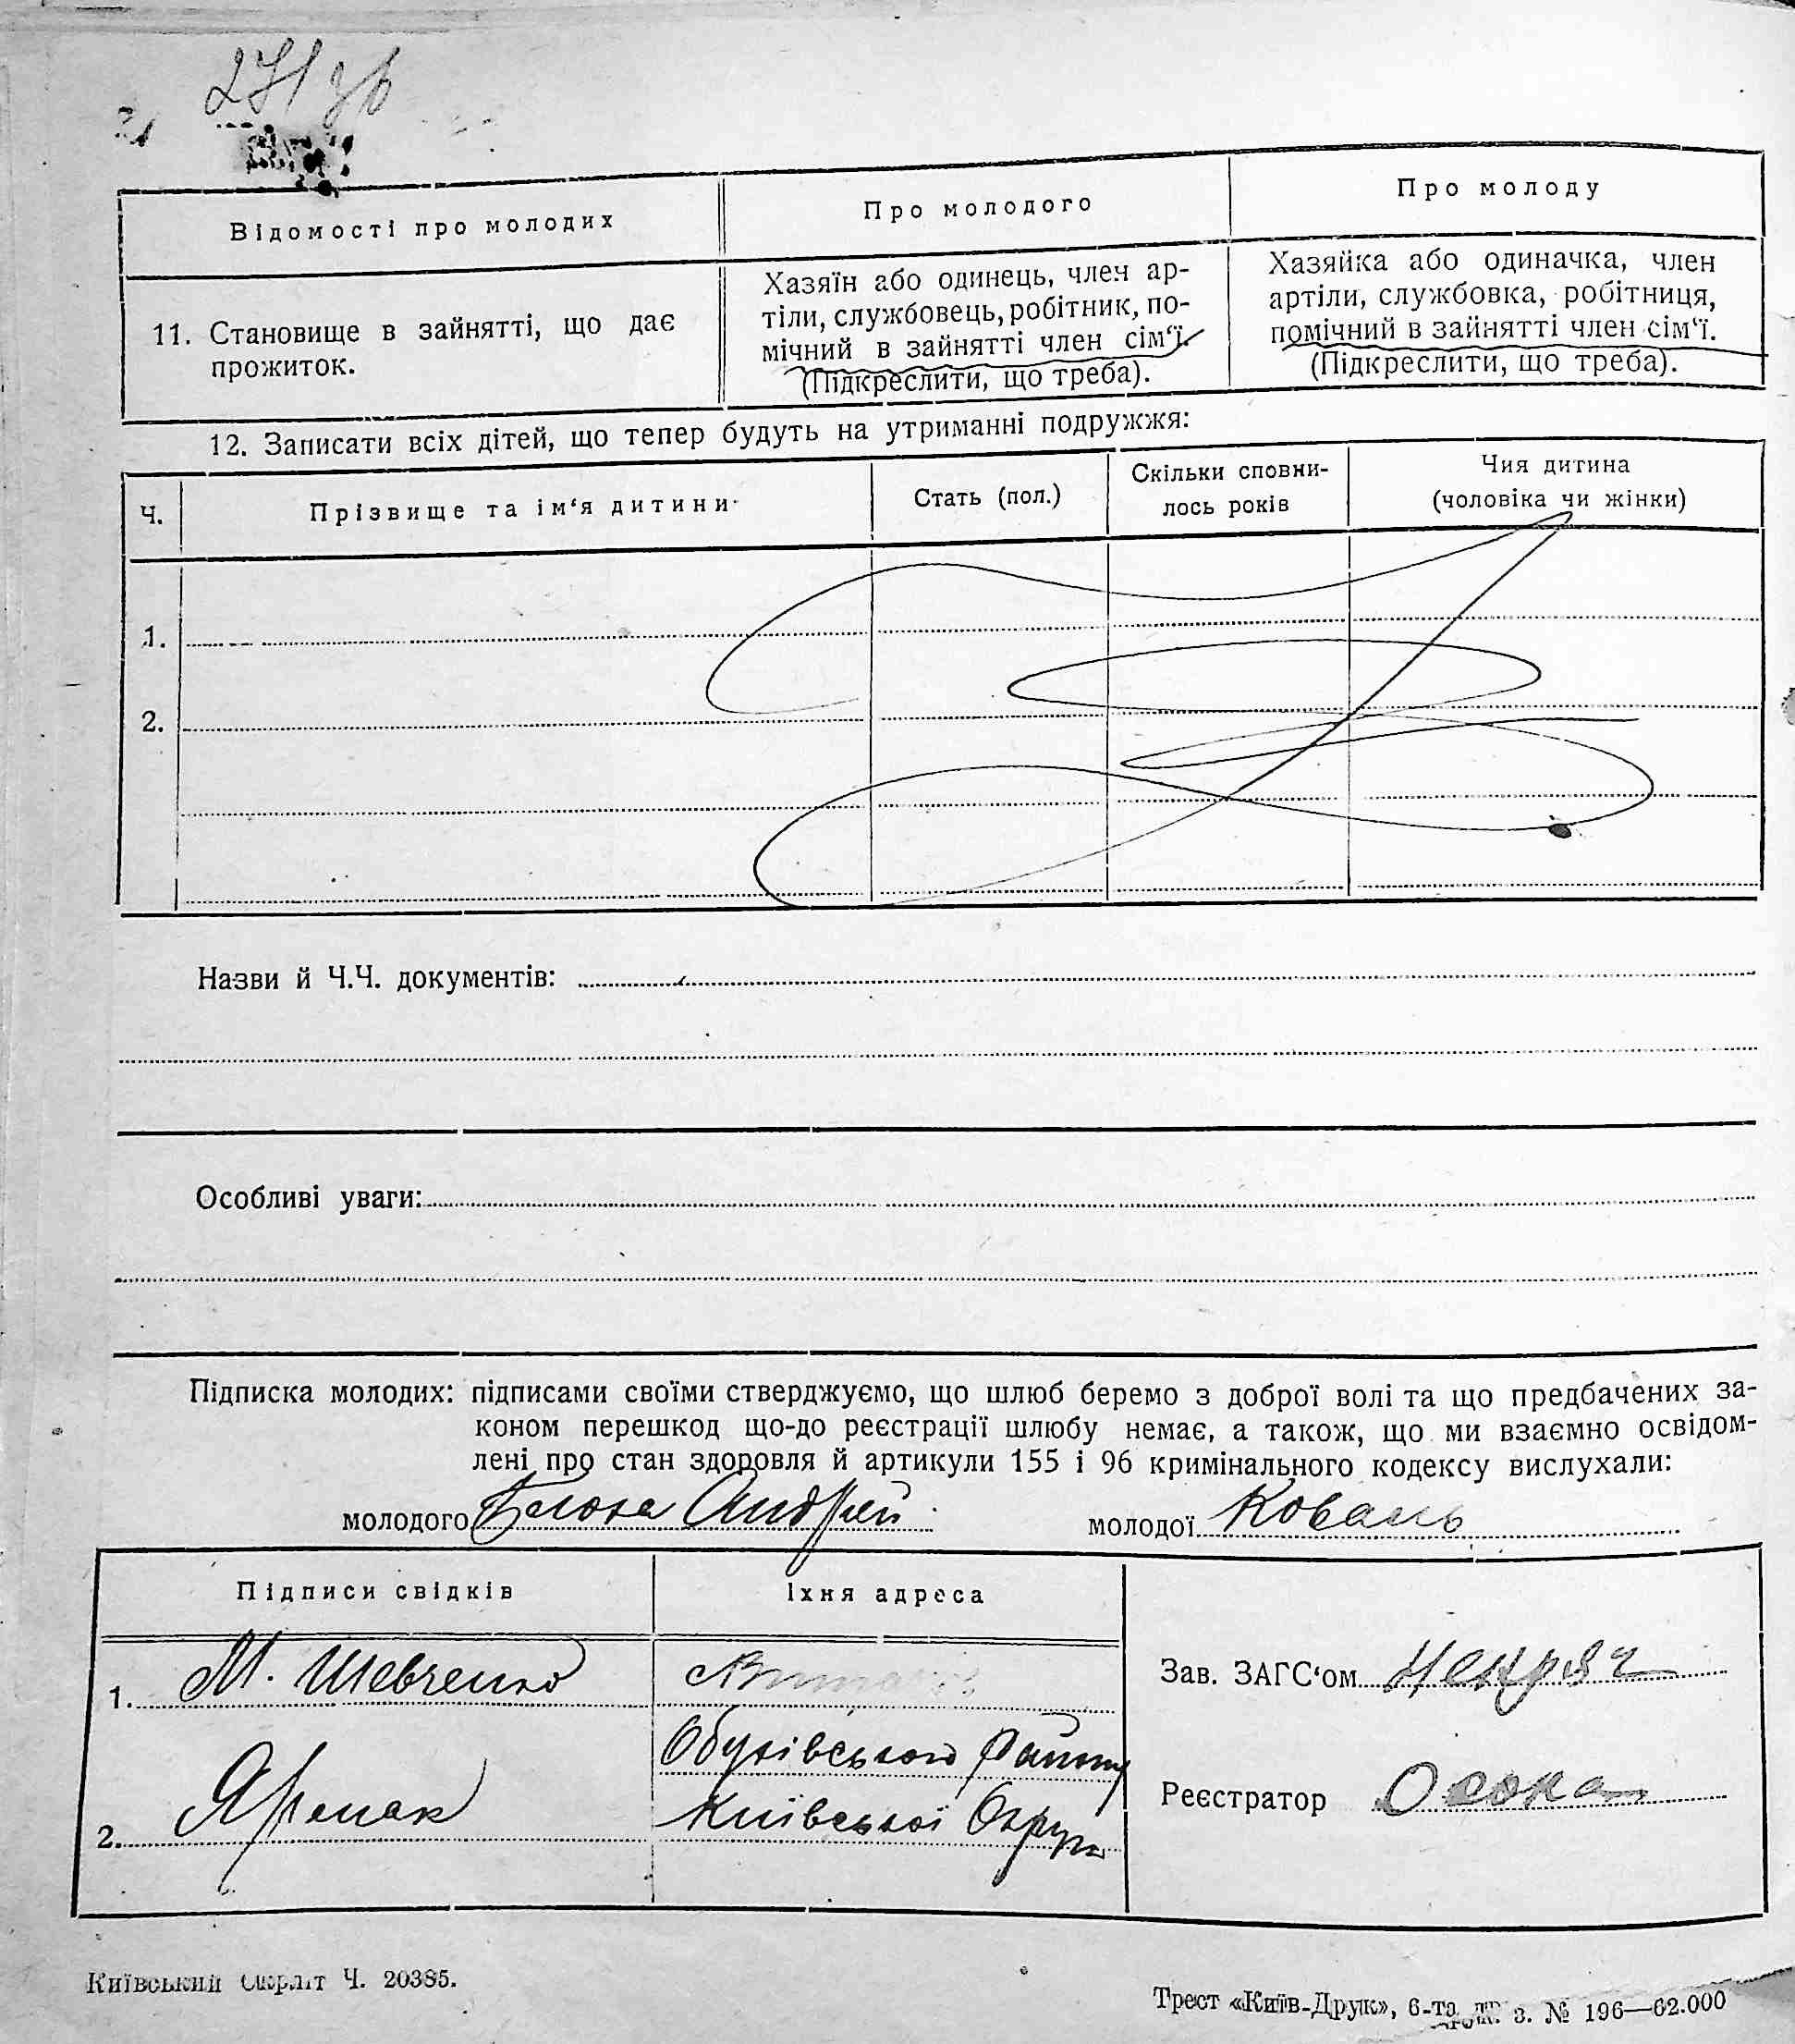 271 зв
Відомості про молодих
Про молодого
Про молоду
11. Становище в зайнятті, що дає
прожиток.
Хазяїн або одинець, член ар-
тіли, службовець, робітник, по-
мічний в зайнятті член сім'ї.
(Підкреслити, що треба).
Хазяйка або одиначка, член
артіли, службовка, робітниця,
помічний в зайнятті член сім'ї.
(Підкреслити, що треба).
12. Записати всіх дітей, що тепер будуть на утриманні подружжя:
Ч.
Прізвище та ім'я дитини
Стать (пол.)
Скільки сповни-
лось років
Чия дитина
(чоловіка чи жінки)
1.
2.
Назви й Ч.Ч. документів:
Особливі уваги:
Підписка молодих: підписами своїми стверджуємо, що шлюб беремо з доброї волі та що предбачених за-
коном перешкод що-до реєстрації шлюбу немає, а також, що ми взаємно освідом-
лені про стан здоровля й артикули 155 і 96 кримінального кодексу вислухали:
молодого Андрей молодої Коваль
Підписи свідків
Їхня адреса
1. М. Шевченко
Обухівського Району
2. Яремак
Київської Округи
Зав. ЗАГС'ом
Реєстратор Осока
Київський Окрліт Ч. 20385.
Трест «Київ-Друк», 6-та др. з. № 196—62.000